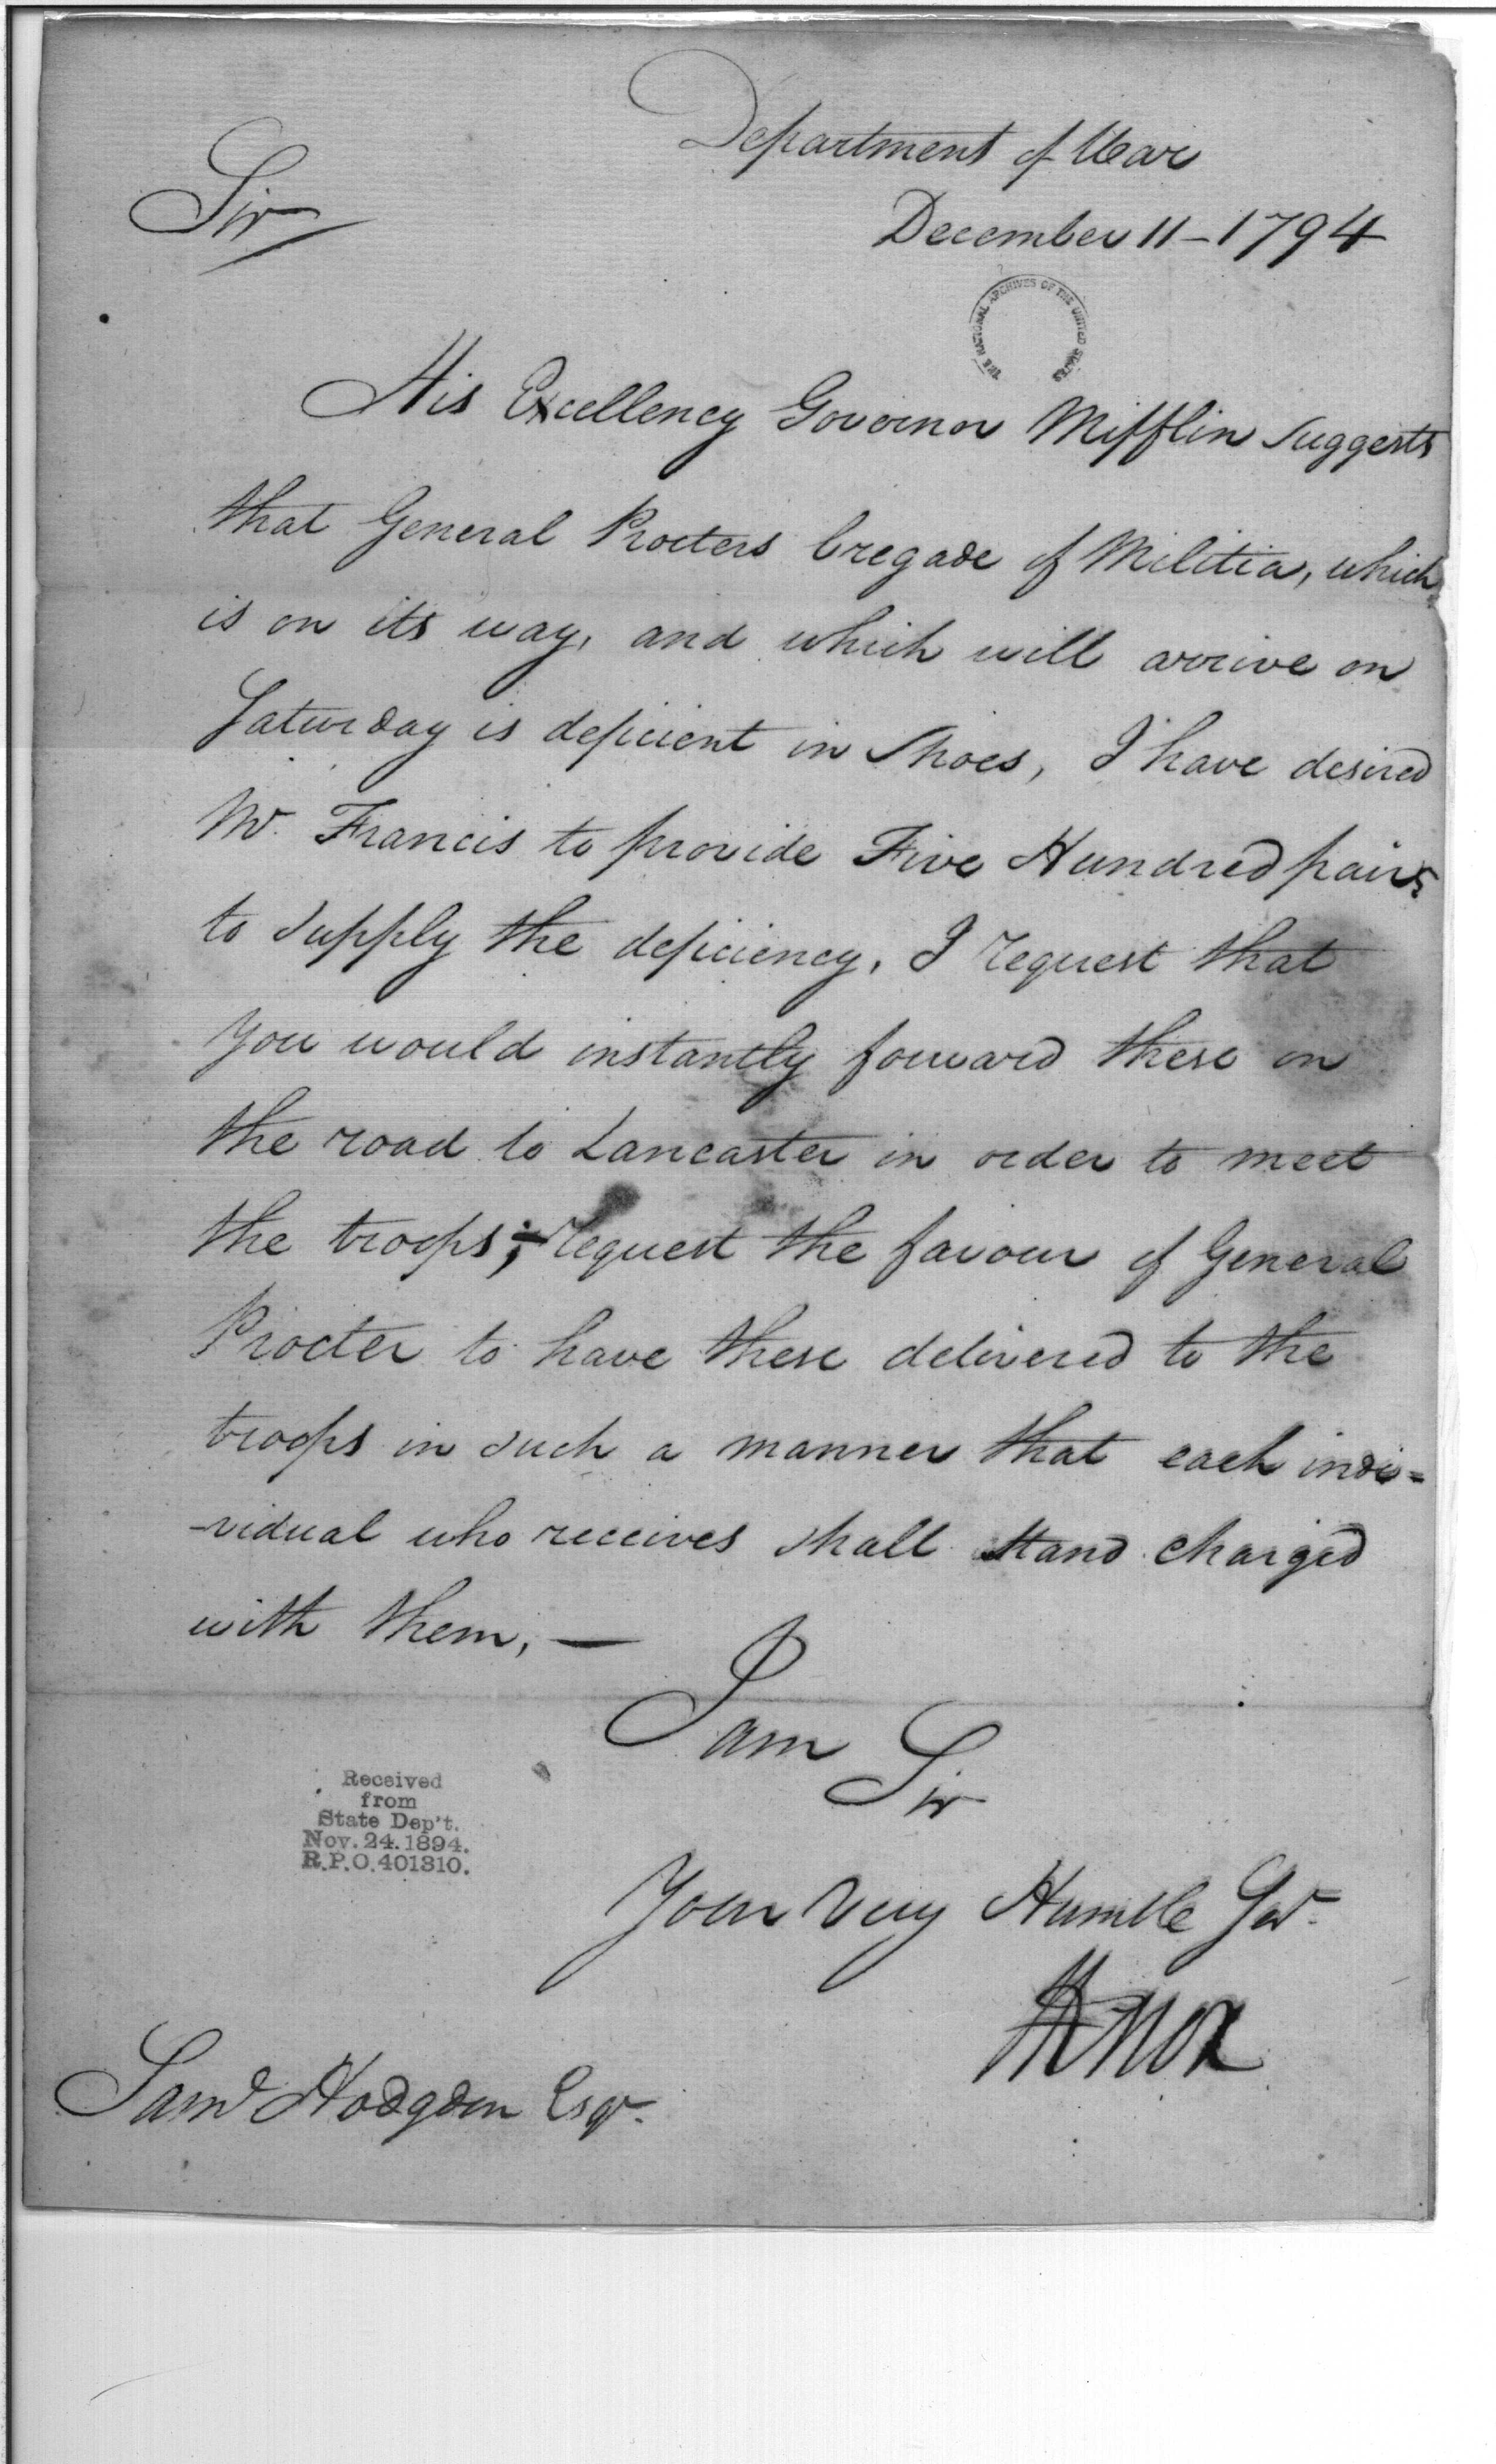 Department of War
Sir
December 11 - 1794
THE NATIONAL ARCHIVES OF THE UNITED STATES
His Excellency Governor Mifflin Suggests
that General Procters bregade of Militia, which
is on its way, and which will arrive on
Saturday is deficient in Shoes, I have desired
Mr. Francis to provide Five Hundred pairs
to supply the deficiency, I request that
You would instantly forward these on
the road to Lancaster in order to meet
the troops; request the favour of General
Procter to have these delivered to the
troops in such a manner that each indi=
-vidual who receives shall stand charged
with them, —
I am Sir
Received
from
State Dep't.
Nov. 24. 1894.
R.P.O. 401310.
Your Very Humble Ser.
HKnox
Saml Hodgdon Esqr.